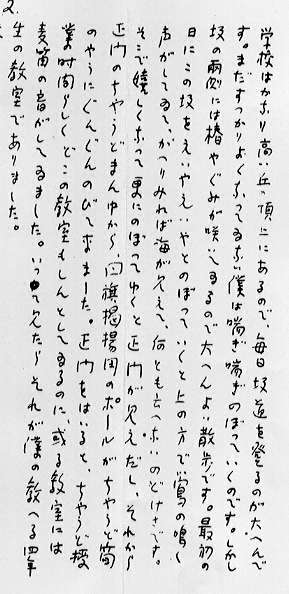 2.
学校はかなり高い丘の頂上にあるので、毎日坂道を登るのが大へんで
す。まだすつかりよくなつてゐない僕は喘ぎ喘ぎのぼつていくのです。しかし
坂の両側には椿やぐみが咲いてゐるので大へんよい散歩です。最初の
日にこの坂をえいやえいやとのぼつていくと上の方で鶯の鳴く
声がしてゐて、がつりみれば海が見えて、何とも云へないのどけさです。
そこで嬉しくなつて更にのぼつてゆくと正門が見えだし、それから
正門のちやうどまんなかから、国旗掲揚用のポールがちやうど筍
のやうにぐんぐんのびて来ました。正門をはいると、ちやうど授
業時間らしくどこの教室もしんとしてゐるのに、或る教室には
麦笛の音がしてゐました。いつて見たらそれが僕の教へる四年
生の教室でありました。